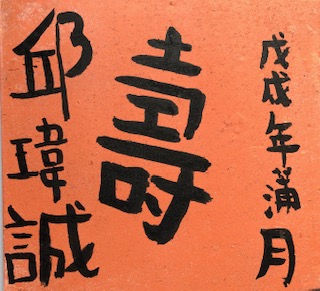 戊戌年蒲月
壽
邱瑋誠